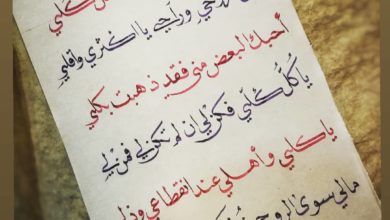 كلي
يا اكثري وأقلي
أحبك البعض مني فقد ذهبت بكلي
يا كُلَّ كُلّي فكن لي ان لم تكن لي فمن لي
يا كلي و أهلي عند انقطاعي وذلي
مالي سوى الروح